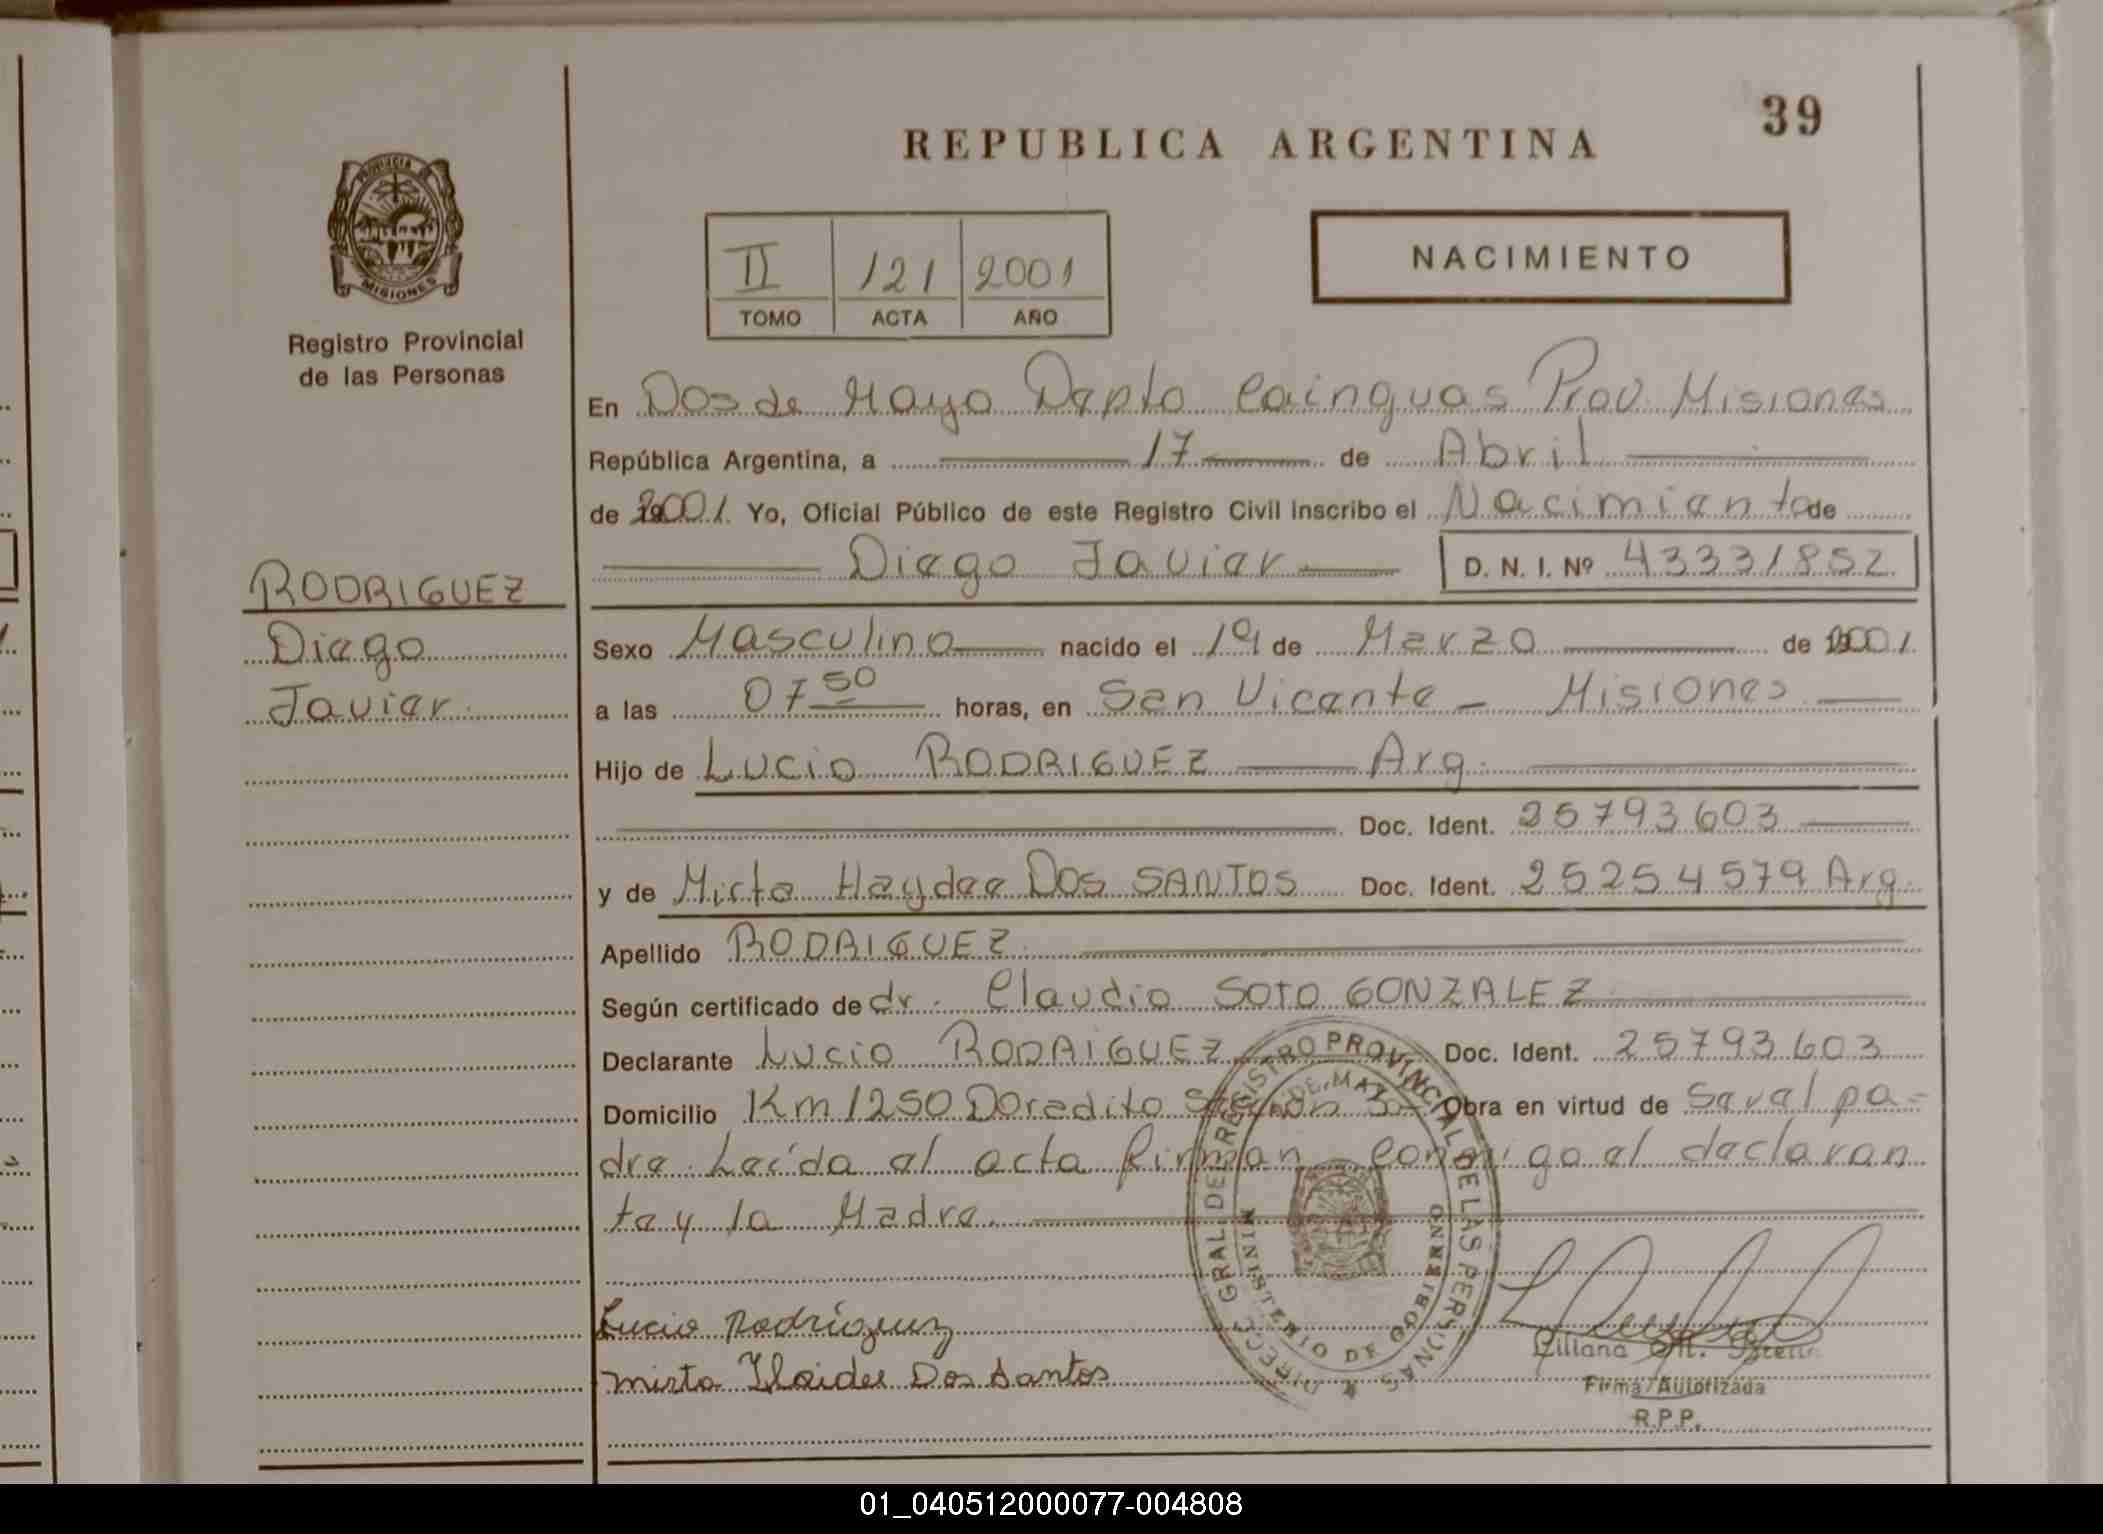 39
REPUBLICA ARGENTINA
PROVINCIA DE MISIONES
II 121 2001
TOMO ACTA AÑO
NACIMIENTO
Registro Provincial
de las Personas
En Dos de Mayo Depto Cainguas Prov. Misiones
República Argentina, a 17 de Abril
de 2001. Yo, Oficial Público de este Registro Civil inscribo el Nacimiento de
Diego Javier D. N. I. Nº 43331852
RODRIGUEZ
Diego
Javier
Sexo Masculino nacido el 19 de Marzo de 2001.
a las 07 50 horas, en San Vicente - Misiones
Hijo de Lucio RODRIGUEZ Arg.
Doc. Ident. 25793603
y de Mirta Haydee DOS SANTOS Doc. Ident. 25254579 Arg.
Apellido RODRIGUEZ
Según certificado de dr. Claudio SOTO GONZALEZ
Declarante Lucio RODRIGUEZ Doc. Ident. 25793603
Domicilio Km 1250 Doradito Obra en virtud de ser el pa-
dre. Leída el acta firman conmigo el declaran
te y la Madre.
DIRECC. GRAL DE REGISTRO PROVINCIAL DE LAS PERSONAS
MINISTERIO DE GOBIERNO
DE MAYO
Lucio Rodríguez
Mirta Haidee Dos Santos
Firma Autorizada
R.P.P.
01_040512000077-004808